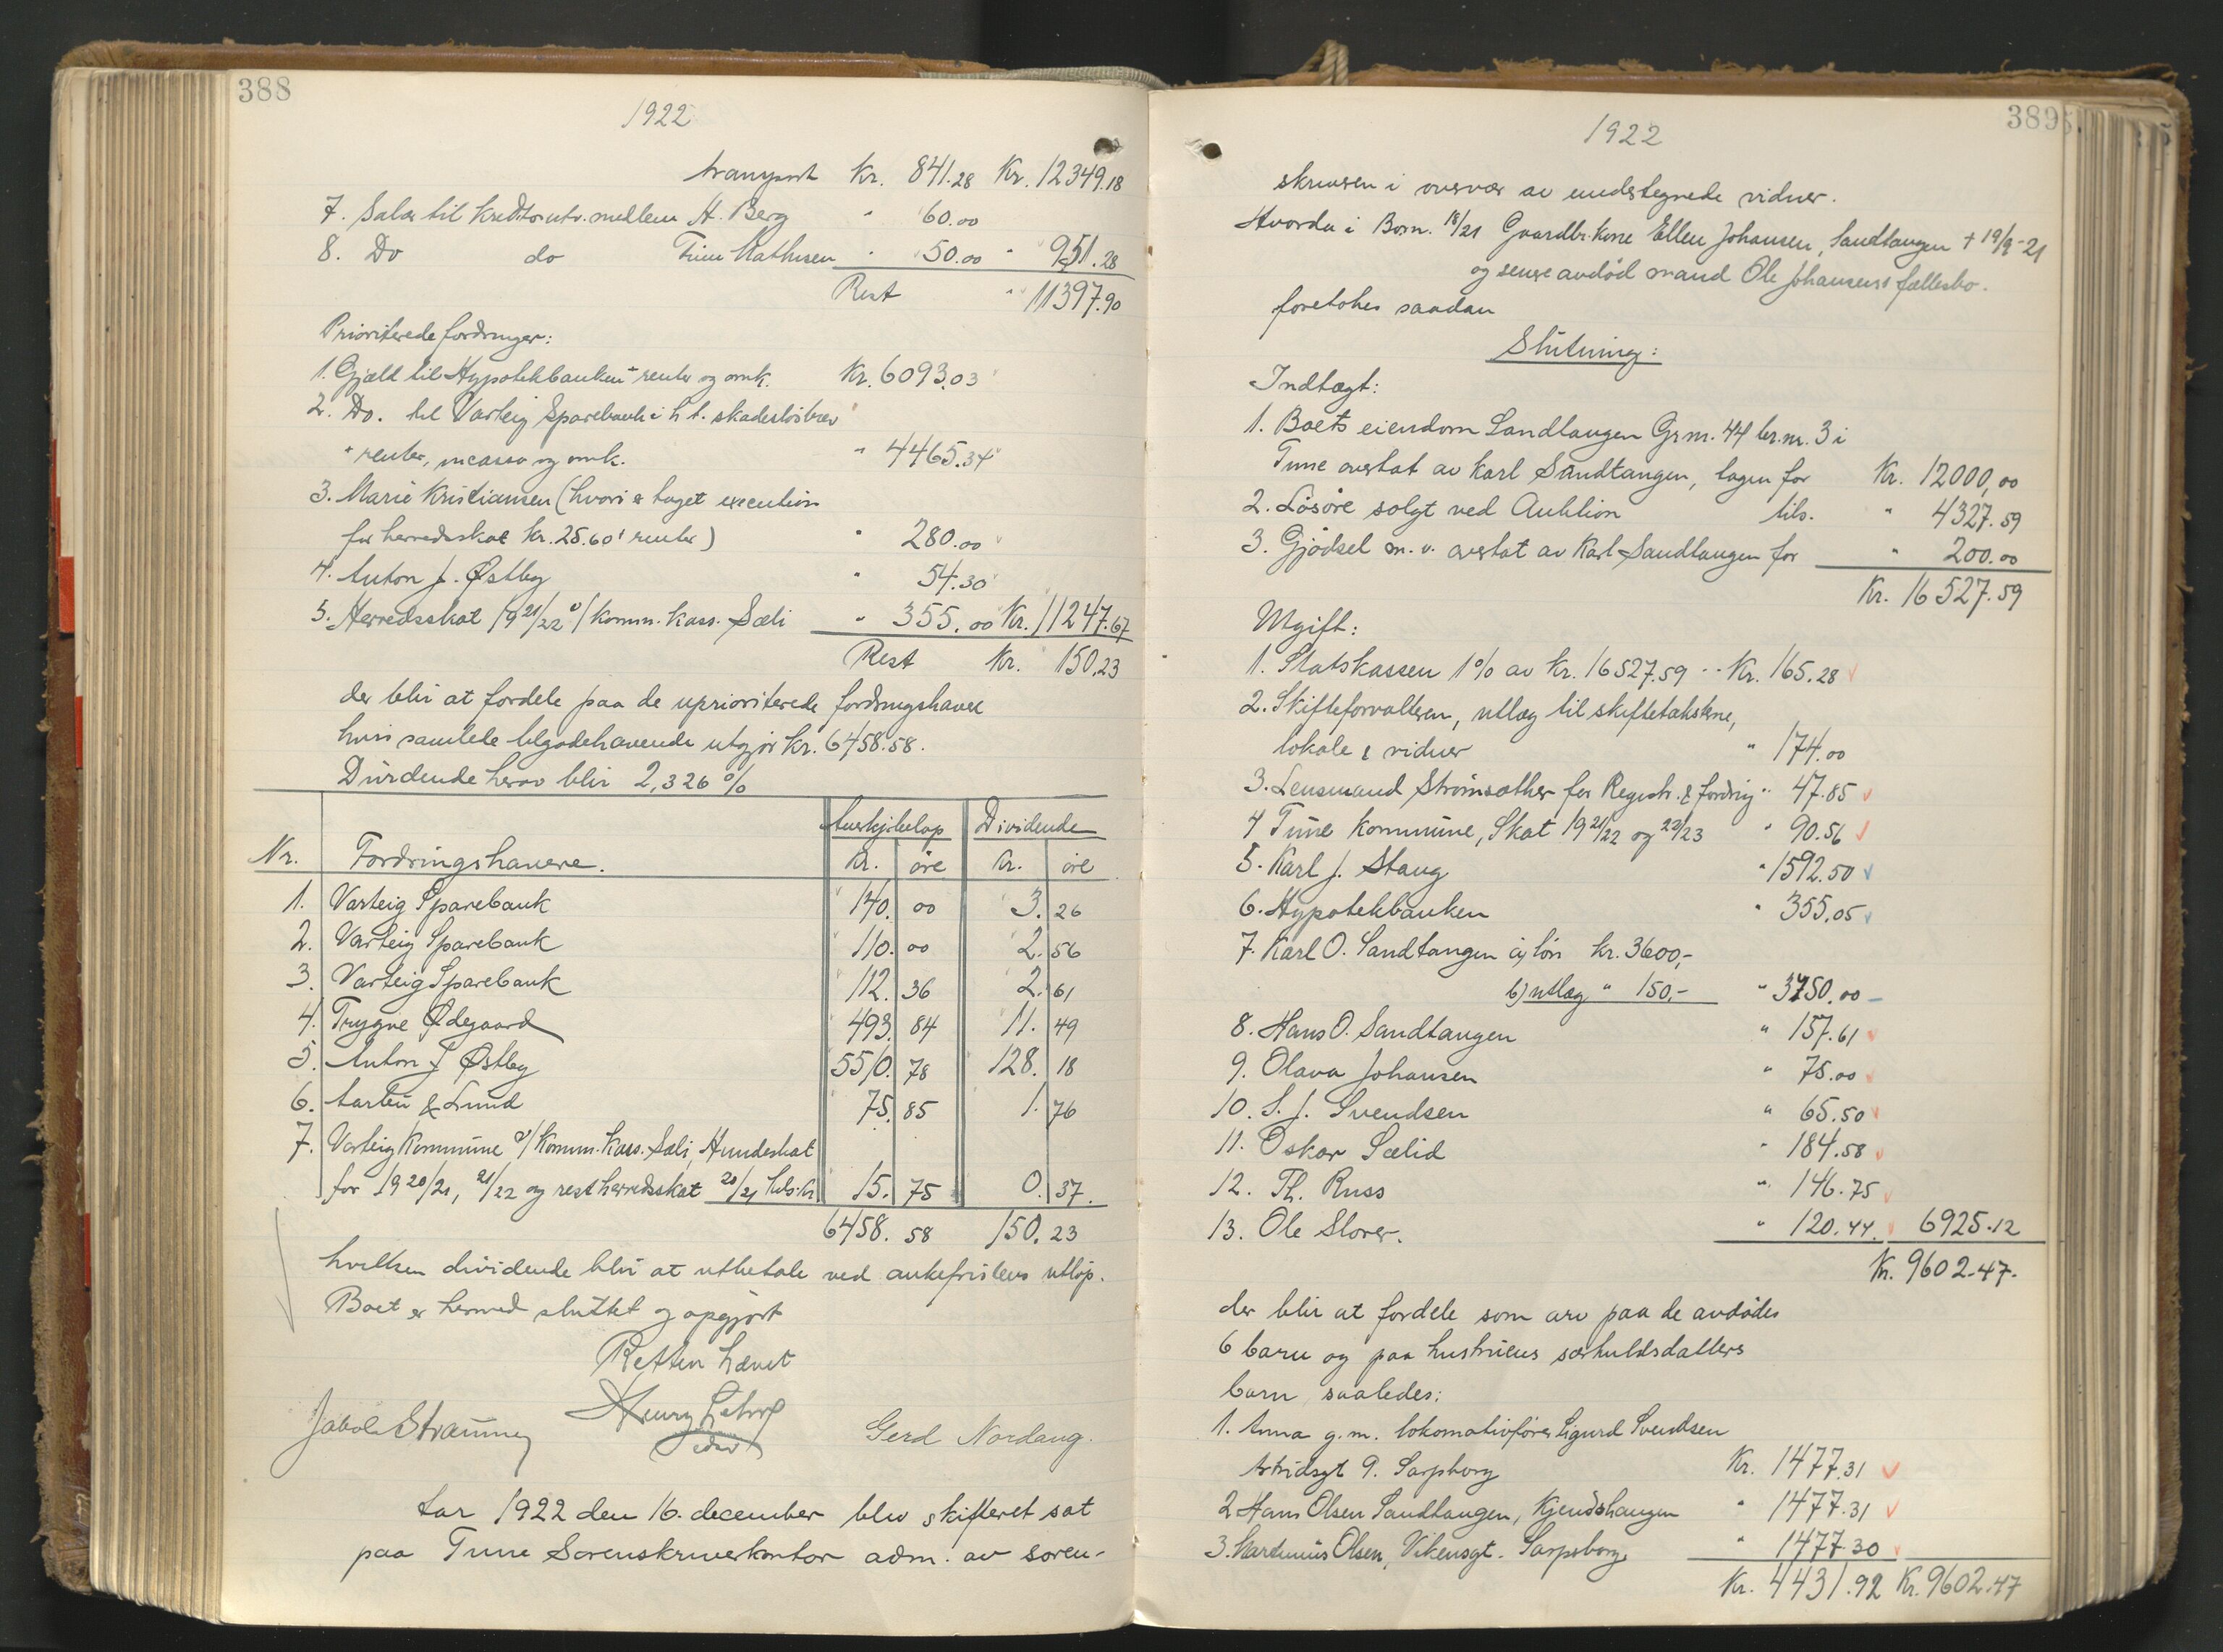 388
1922
transport Kr. 841.28 Kr. 12349.18
7. Salær til kreditorutv. medlem H. Berg " 60.00
8. Do do Tinus Mathisen " 50.00 " 951.28
Rest " 11397.90
Prioriterede fordringer:
1. Gjæld til Hypotekbanken + renter og omk. Kr. 6093.03
2. Do. til Varteig Sparebank i h.t. skadesløsbrev
+ renter, incasso og omk. " 4465.34
3. Marie Kristiansen (hvori er taget execution
for herredsskat kr. 25.60 + renter) " 280.00
4. Anton J. Østby " 54.30
5. Herredsskat 19 21/22 v/ komm. kass. Sæli " 355.00 Kr. 11247.67
Rest Kr. 150.23
der blir at fordele paa de uprioriterede fordringshaver
hvis samlede tilgodehavende utgjør kr. 6458.58.
Dividende herav blir 2,326 %
Nr. Fordringshavere. Anerkj. beløp Dividende
Kr. øre Kr. øre
1. Varteig Sparebank 140. 00 3. 26
2. Varteig Sparebank 110. 00 2. 56
3. Varteig Sparebank 112. 36 2. 61
4. Trygve Ødegaard 493. 84 11. 49
5. Anton J Østby 5510. 78 128. 18
6. & Lund 75. 85 1. 76
7. Varteig Kommune v/ Komm. kass. Sæli, Hundeskat
for 19 20/21, 21/22 og rest herredsskat 20/21 tils. kr. 15. 75 0. 37.
6458. 58 150. 23
hvilken dividende blir at utbetale ved ankefristens utløp.
Boet er hermed sluttet og opgjort
Retten hævet
Jakob Strømme Henry Gerd Nordaug.
edsv
Aar 1922 den 16. december blev skifteret sat
paa Tune Sorenskriverkontor adm. av soren-
389
1922
skriveren i overvær av undertegnede vidner.
Hvorda i Bosn. 18/21 Gaardbr. kone Ellen Johansen, Sandtangen + 19/9-21
og senere avdød mand Ole Johansens fællesbo.
foretokes saadan
Slutning:
Indtægt:
1. Boets eiendom Sandtangen Grnr. 44 br.nr. 3 i
Tune overtat av Karl Sandtangen, tagen for Kr. 12000,00
2. Løsøre solgt ved Auktion tils. " 4327.59
3. Gjødsel m.v. overtat av Karl Sandtangen for " 200.00
Kr. 16527.59
Utgift:
1. Statskassen 1% av kr. 16527.59 -- Kr. 165.28
2. Skifteforvalteren, utlæg til skiftetakstene,
lokale & vidner " 174.00
3. Lensmand Strømsæther for Registr. & fordring " 47.85
4 Tune Kommune, Skat 19 21/22 og 22/23 " 90.56
5. Karl J. Stang " 1592.50
6. Hypotekbanken " 355.05
7. Karl O. Sandtangen a) løn kr. 3600,-
b) utlæg " 150,- " 3750.00
8. Hans O. Sandtangen " 157.61
9. Olava Johansen " 75.00
10. S. J. Svendsen " 65.50
11. Oskar Sælid " 184.58
12. Th. Russ " 146.75
13. Ole Slorer. " 120.44. 6925.12
Kr. 9602.47.
der blir at fordele som arv paa de avdødes
6 barn og paa hustruens særkuldsdatters
barn, saaledes:
1. Anna g.m. lokomotivfører Sigurd Svendsen
Astridsgt 9. Sarpsborg Kr. 1477.31
2 Hans Olsen Sandtangen, Kjendshaugen " 1477.31
3. Martinius Olsen, Vikensgt. Sarpsborg " 1477.30
Kr. 4431.92 Kr. 9602.47